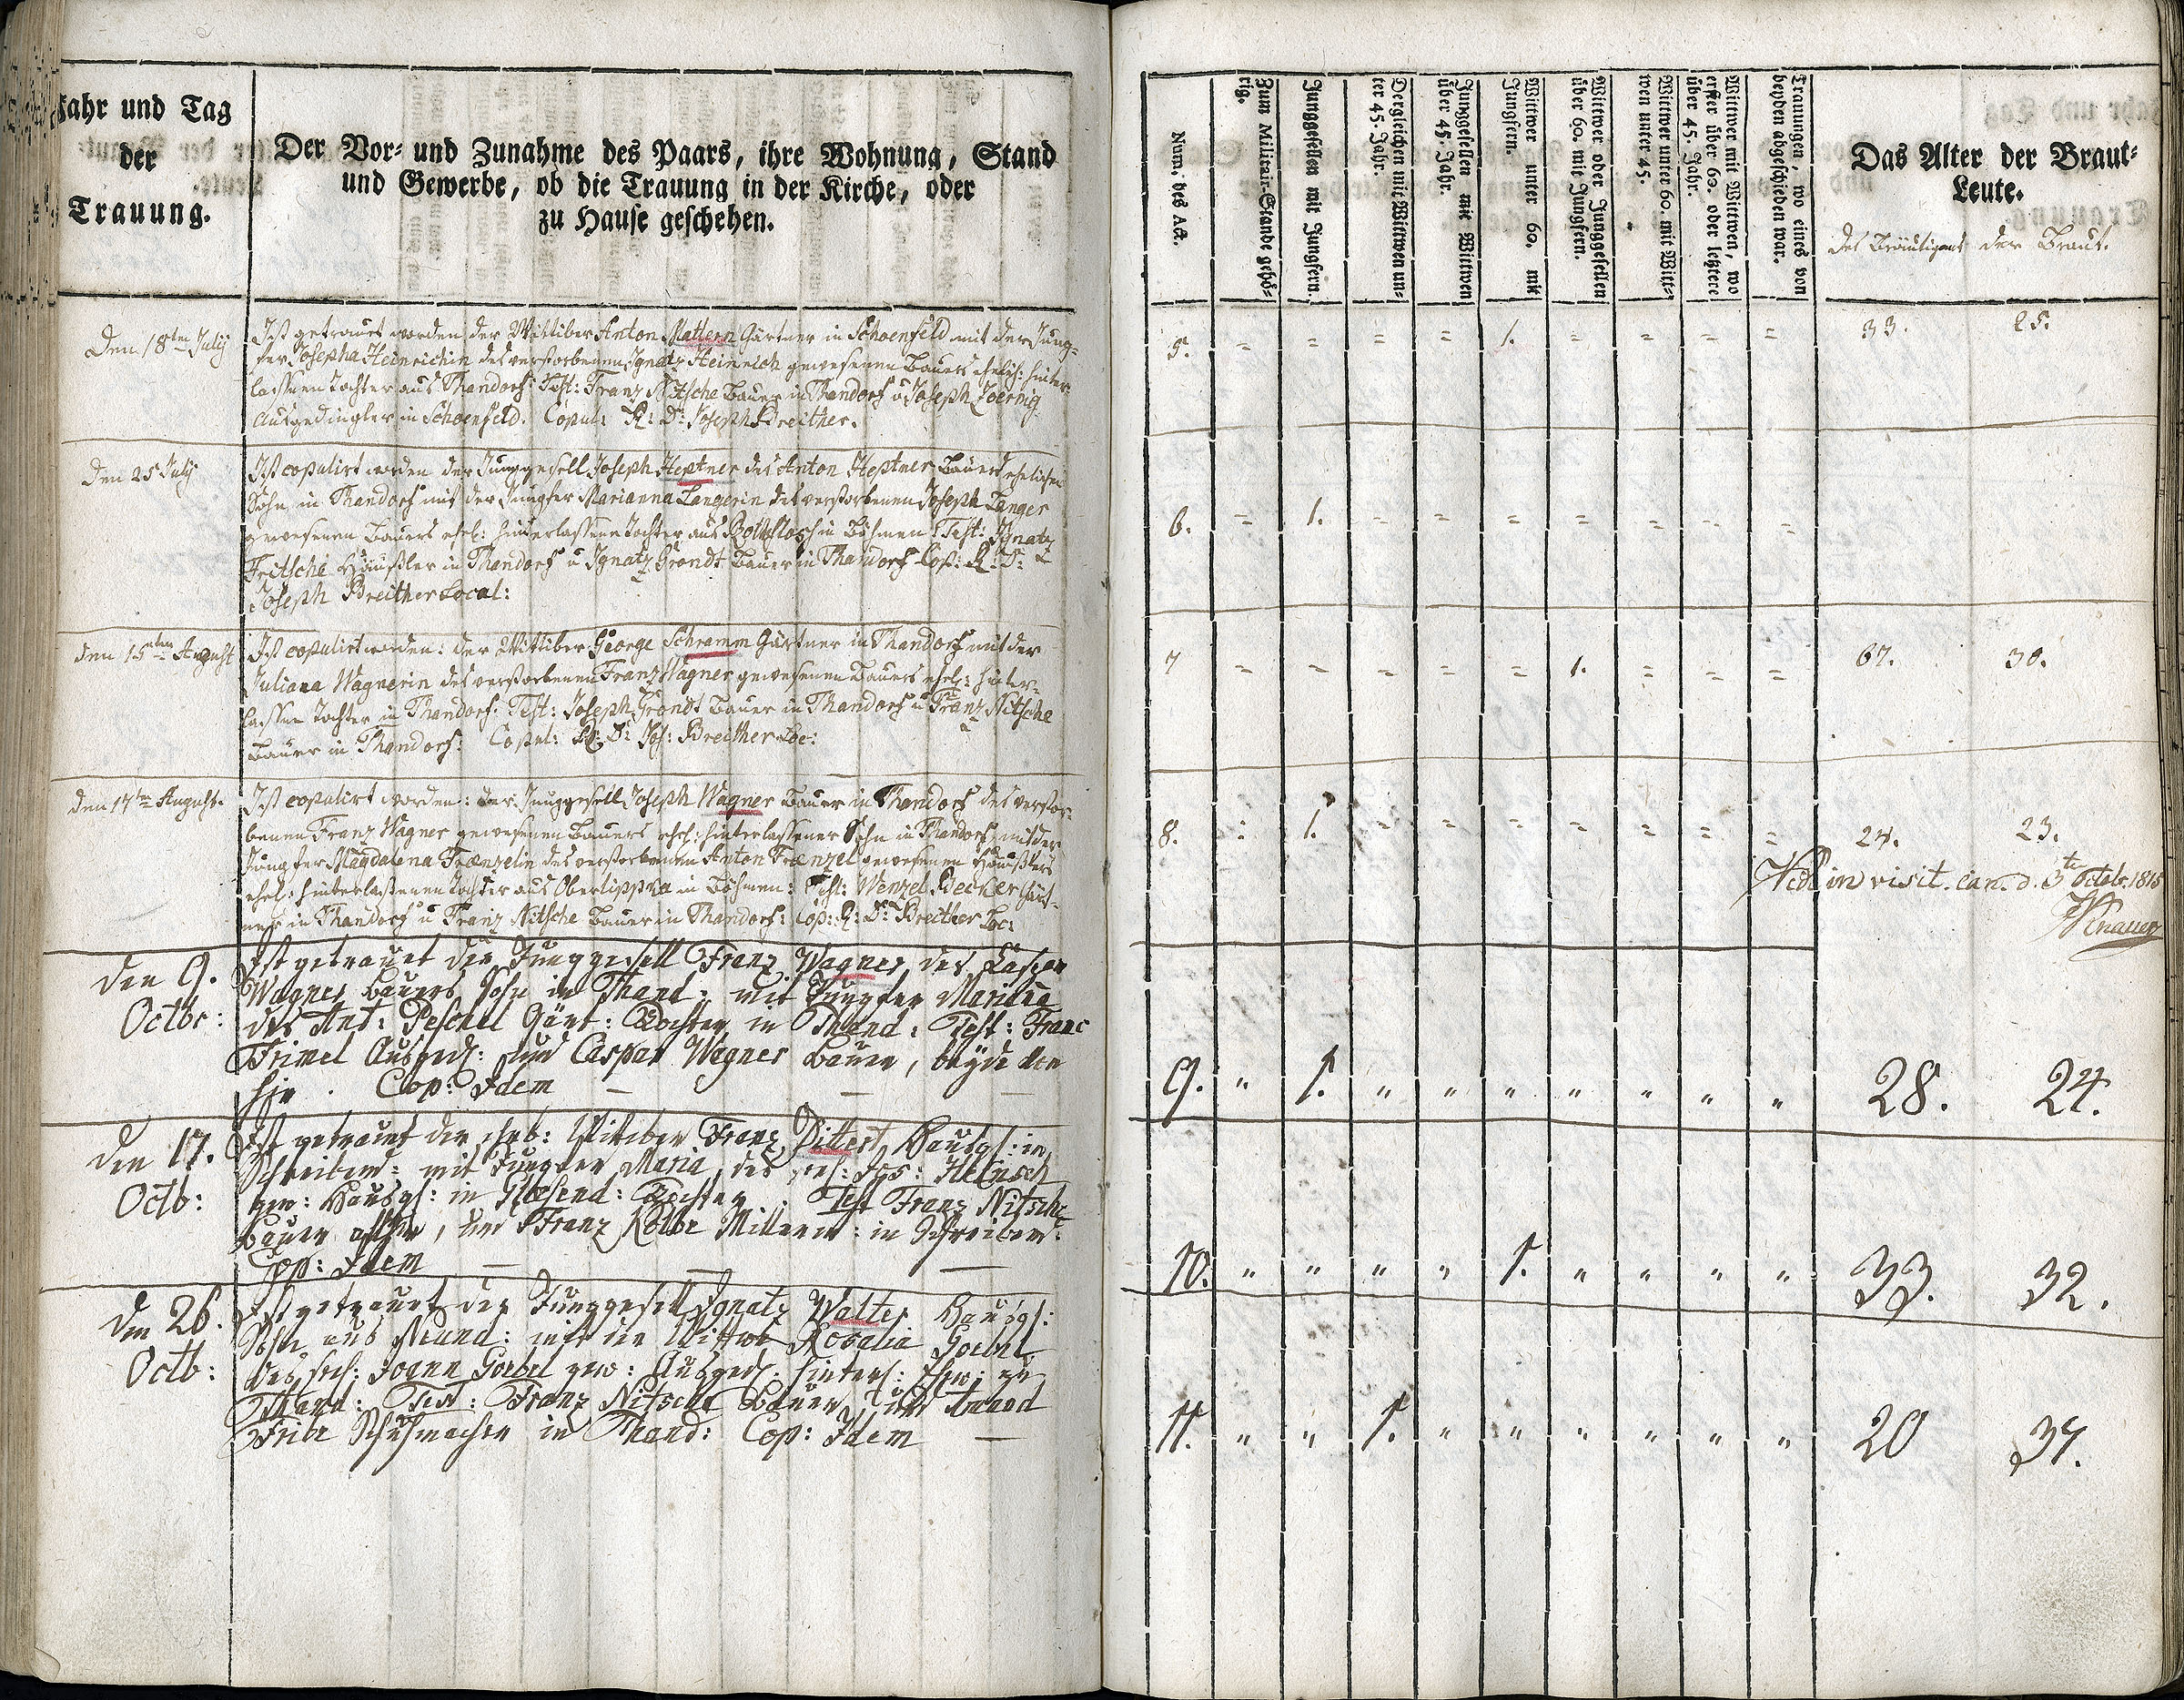 Jahr und Tag
der
Trauung.
Der Vor- und Zunahme des Paars, ihre Wohnung, Stand
und Gewerbe, ob die Trauung in der Kirche, oder
zu Hause geschehen.
Den 18ten July
Ist getrauet worden der Wittiber Anton Mattern Gärtner in Schoenfeld mit der Jung-
fer Josepha Heinrichin des verstorbenen Ignatz Heinrich gewesenen Bauers ehel: hinter-
lassenen Tochter aus Thandorf: Test: Franz Nitsche Bauer in Thandorf u Joseph Zoernig
Ausgedingler in Schoenfeld. Copul: R: D: Joseph Breither.
Den 25 July
Ist copulirt worden der Junggesell Joseph Heptner des Anton Heptner Bauers ehelicher
Sohn in Thandorf mit der Jungfer Marianna Langerin des verstorbenen Joseph Langer
gewesenen Bauers ehel: hinterlassene Tochter aus Rothfloss in Böhmen: Test: Ignatz
Fritsche Häußler in Thandorf u Ignatz Grondt Bauer in Thandorf Cop: R: D:
Joseph Breither Local:
den 15ten August
Ist copulirt worden: der Wittiber George Schramm Gärtner in Thandorf mit der
Juliana Wagnerin des verstorbenen Franz Wagner gewesenen Bauers ehel: hinter-
lassene Tochter in Thandorf. Test: Joseph Grondt Bauer in Thandorf u Franz Nitsche
Bauer in Thandorf: Copul: R: D: Jos: Breither Loc:
den 17te August.
Ist copulirt worden: der Junggesell Joseph Wagner Bauer in Thandorf des verstor-
benen Franz Wagner gewesenen Bauers ehel: hinterlassener Sohn in Thandorf, mit der
Jungfer Magdalena Frænzelin des verstorbenen Anton Frænzel gewesenen Häußlers
ehel: hinterlaßenen Tochter aus Oberlippka in Böhmen: Test: Wenzel Becker Gärt-
ner in Thandorf u Franz Nitsche Bauer in Thandorf: Cop: R: D: Breither Loc:
den 9.
Octbr:
Ist getrauet der Junggesell Franz Wagner, des Caspar
Wagner Bauers Sohn in Thand: mit Jungfer Mariana
des Ant: Peschel Gärt: Tochter in Thand: Test: Franc
Frimel Ausged: und Caspar Wagner Bauer, beyde von
hir. Cop: Idem
den 17.
Octb:
Ist getrauet der Wittiber Franz Dittert, Hausgl: in
Schreibend: mit Jungfer Maria, des sel: Jos: Heinsch
gew: Hausgl: in Tochter. Test Franz Nitsche
Bauer alhir, und Franz Kolbe Millerm: in Schreibend:
Cop: Idem
den 26.
Octb:
Ist getrauet der Junggesell Ignatz Walter Hausgl:
Sohn aus Neund: mit der Wittwe Rosalia Goebel
des sel: Joann Goebel gew: Ausged: hinterl: Ehew: zu
Thand: Test: Franz Nitsche Bauer, und Amand
Fribe Schuhmacher in Thand: Cop: Idem
Num. des Act.
Zum Militair-Stande gehö-
rig.
Junggesellen mit Jungfern.
Dergleichen mit Wittwen un-
ter 45. Jahr.
Junggesellen mit Wittwen
über 45. Jahr.
Wittwer unter 60. mit
Jungfern.
Wittwer oder Junggesellen
über 60. mit Jungfern.
Wittwer unter 60. mit Witt-
wen unter 45.
Wittwer mit Wittwen, wo
erster über 60. oder letztere
über 45. Jahr.
Trauungen, wo eines von
beyden abgeschieden war.
Das Alter der Braut-
Leute.
des Bräutigams der Braut.
5. = = = = 1. = = = = 33. 25.
6. = 1. = = = = = = =
7 = = = = = 1. = = = 67. 30.
8. = 1. = = = = = = = 24. 23.
Vidi in visit. can. d. 3te Octobr. 1815
Knauer
9. " 1. " " " " " " " 28. 24.
10. " " " " 1. " " " " 33. 32.
11. " " 1. " " " " " " 20 37.